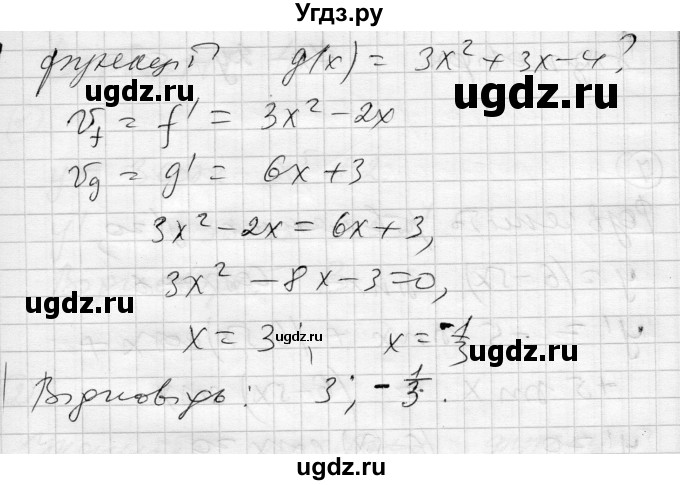 Угдз.ру
функції g(x) = 3x² + 3x - 4?
ugdz.ru ugdz.ru
V_f = f' = 3x² - 2x
V_g = g' = 6x + 3
3x² - 2x = 6x + 3,
3x² - 8x - 3 = 0,
ugdz.ru
x = 3; x = -1/3
ugdz.ru ugdz.ru
Відповідь: 3; -1/3.
ugdz.ru
ugdz.ru